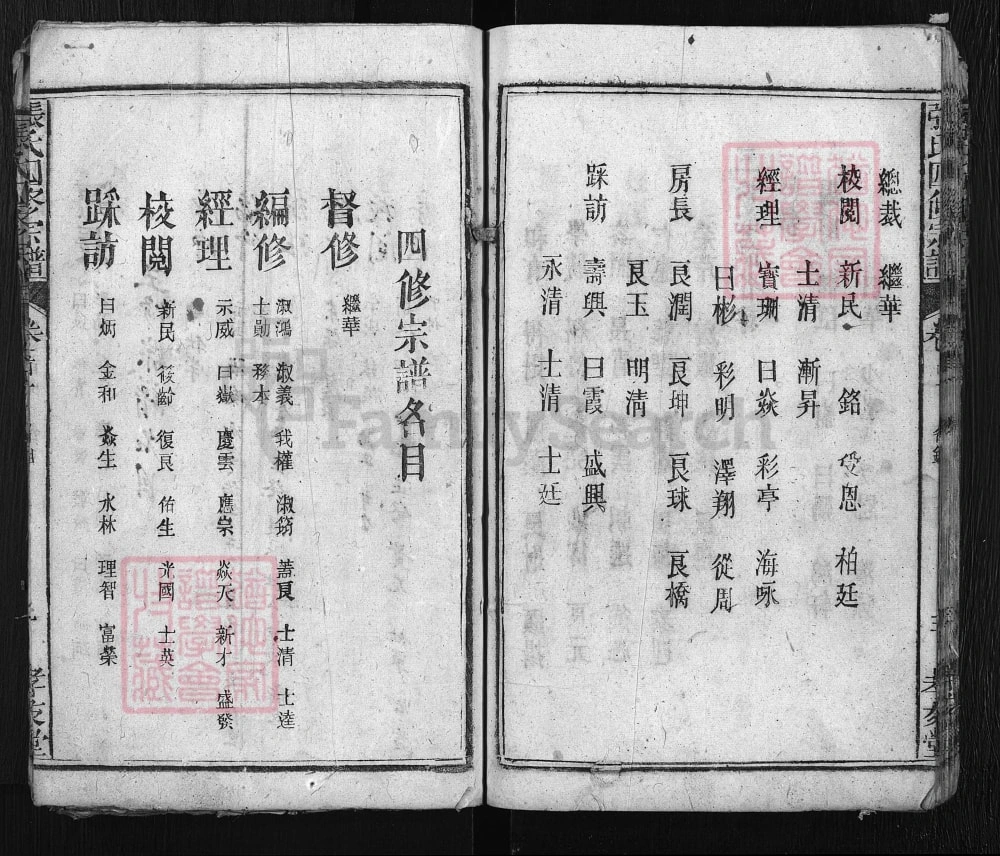 總裁 繼華
校閱 新民 銘受恩 柏廷
士清 漸昇
經理 寶珊 曰焱 彩亭 海咏
曰彬 彩明 澤翔 從周
房長 良潤 良坤 良球 良橋
良玉 明清
踩訪 壽興 曰霞 盛興
永清 士清 士廷
四修宗譜名目
督修 繼華
編修 淑鴻 淑義 我權 淑筠 蓋良 士清 士達
士勛 務本
經理 示威 曰嶽 慶雲 應宗 焱天 新才 盛發
校閱 新民 筱齡 復良 佑生 光國 士英
踩訪 曰炳 金和 焱生 水林 理智 富榮
張氏四修宗譜
孝友堂
FamilySearch